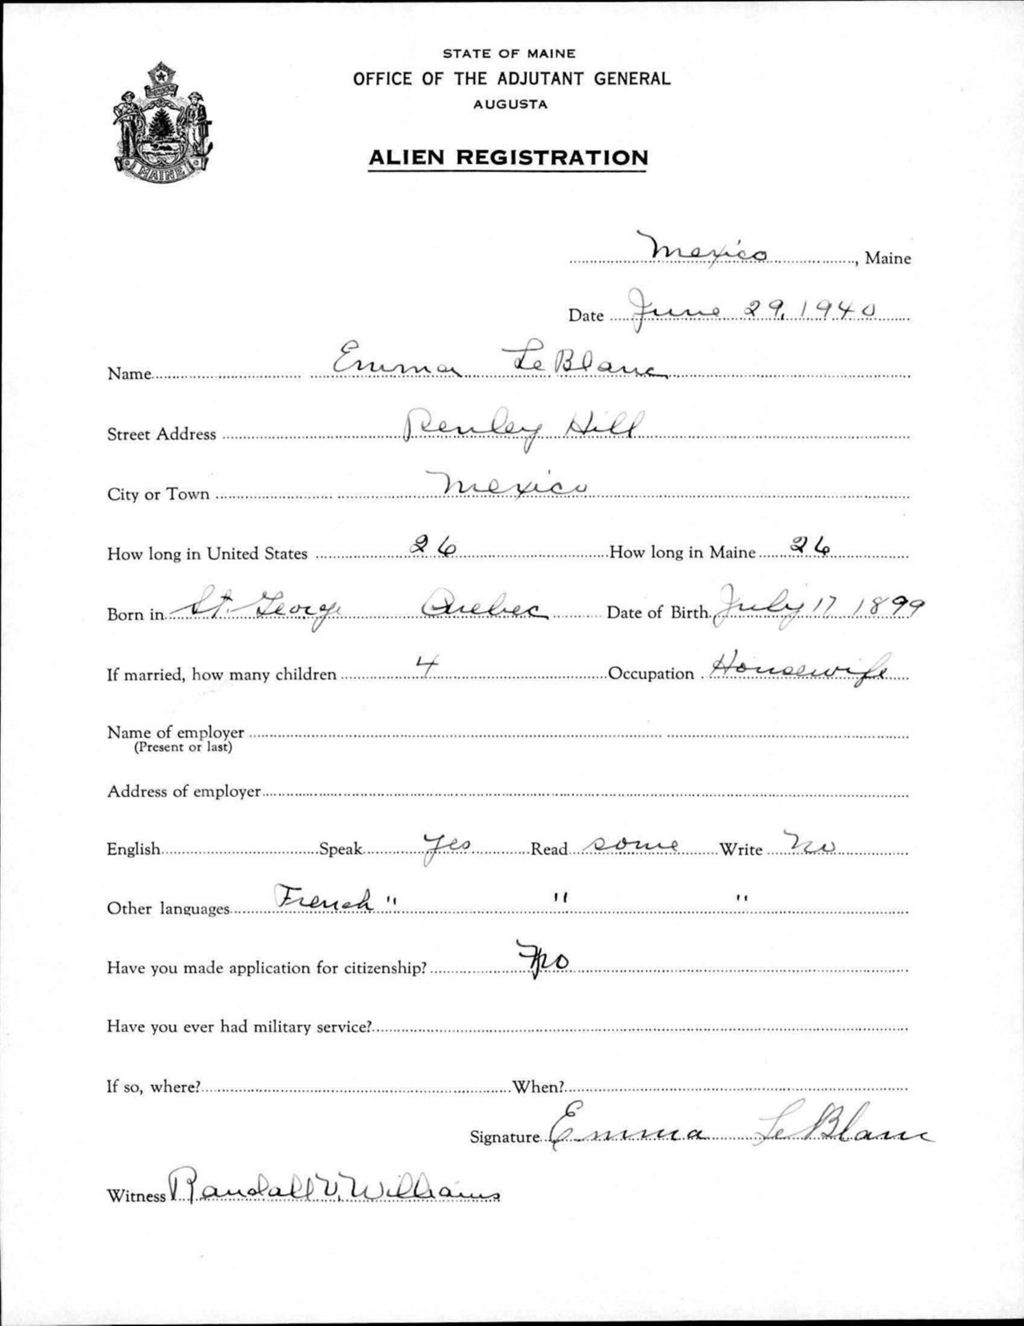 STATE OF MAINE
OFFICE OF THE ADJUTANT GENERAL
AUGUSTA
ALIEN REGISTRATION
MAINE
Mexico, Maine
Date June 29, 1940
Name Emma LeBlanc
Street Address Henley Hill
City or Town Mexico
How long in United States 26 How long in Maine 26
Born in St. George Quebec Date of Birth July 17 1899
If married, how many children 4 Occupation Housewife
Name of employer
(Present or last)
Address of employer
English Speak Yes Read some Write No
Other languages French " " "
Have you made application for citizenship? No
Have you ever had military service?
If so, where? When?
Signature Emma LeBlanc
Witness Randall V. Williams